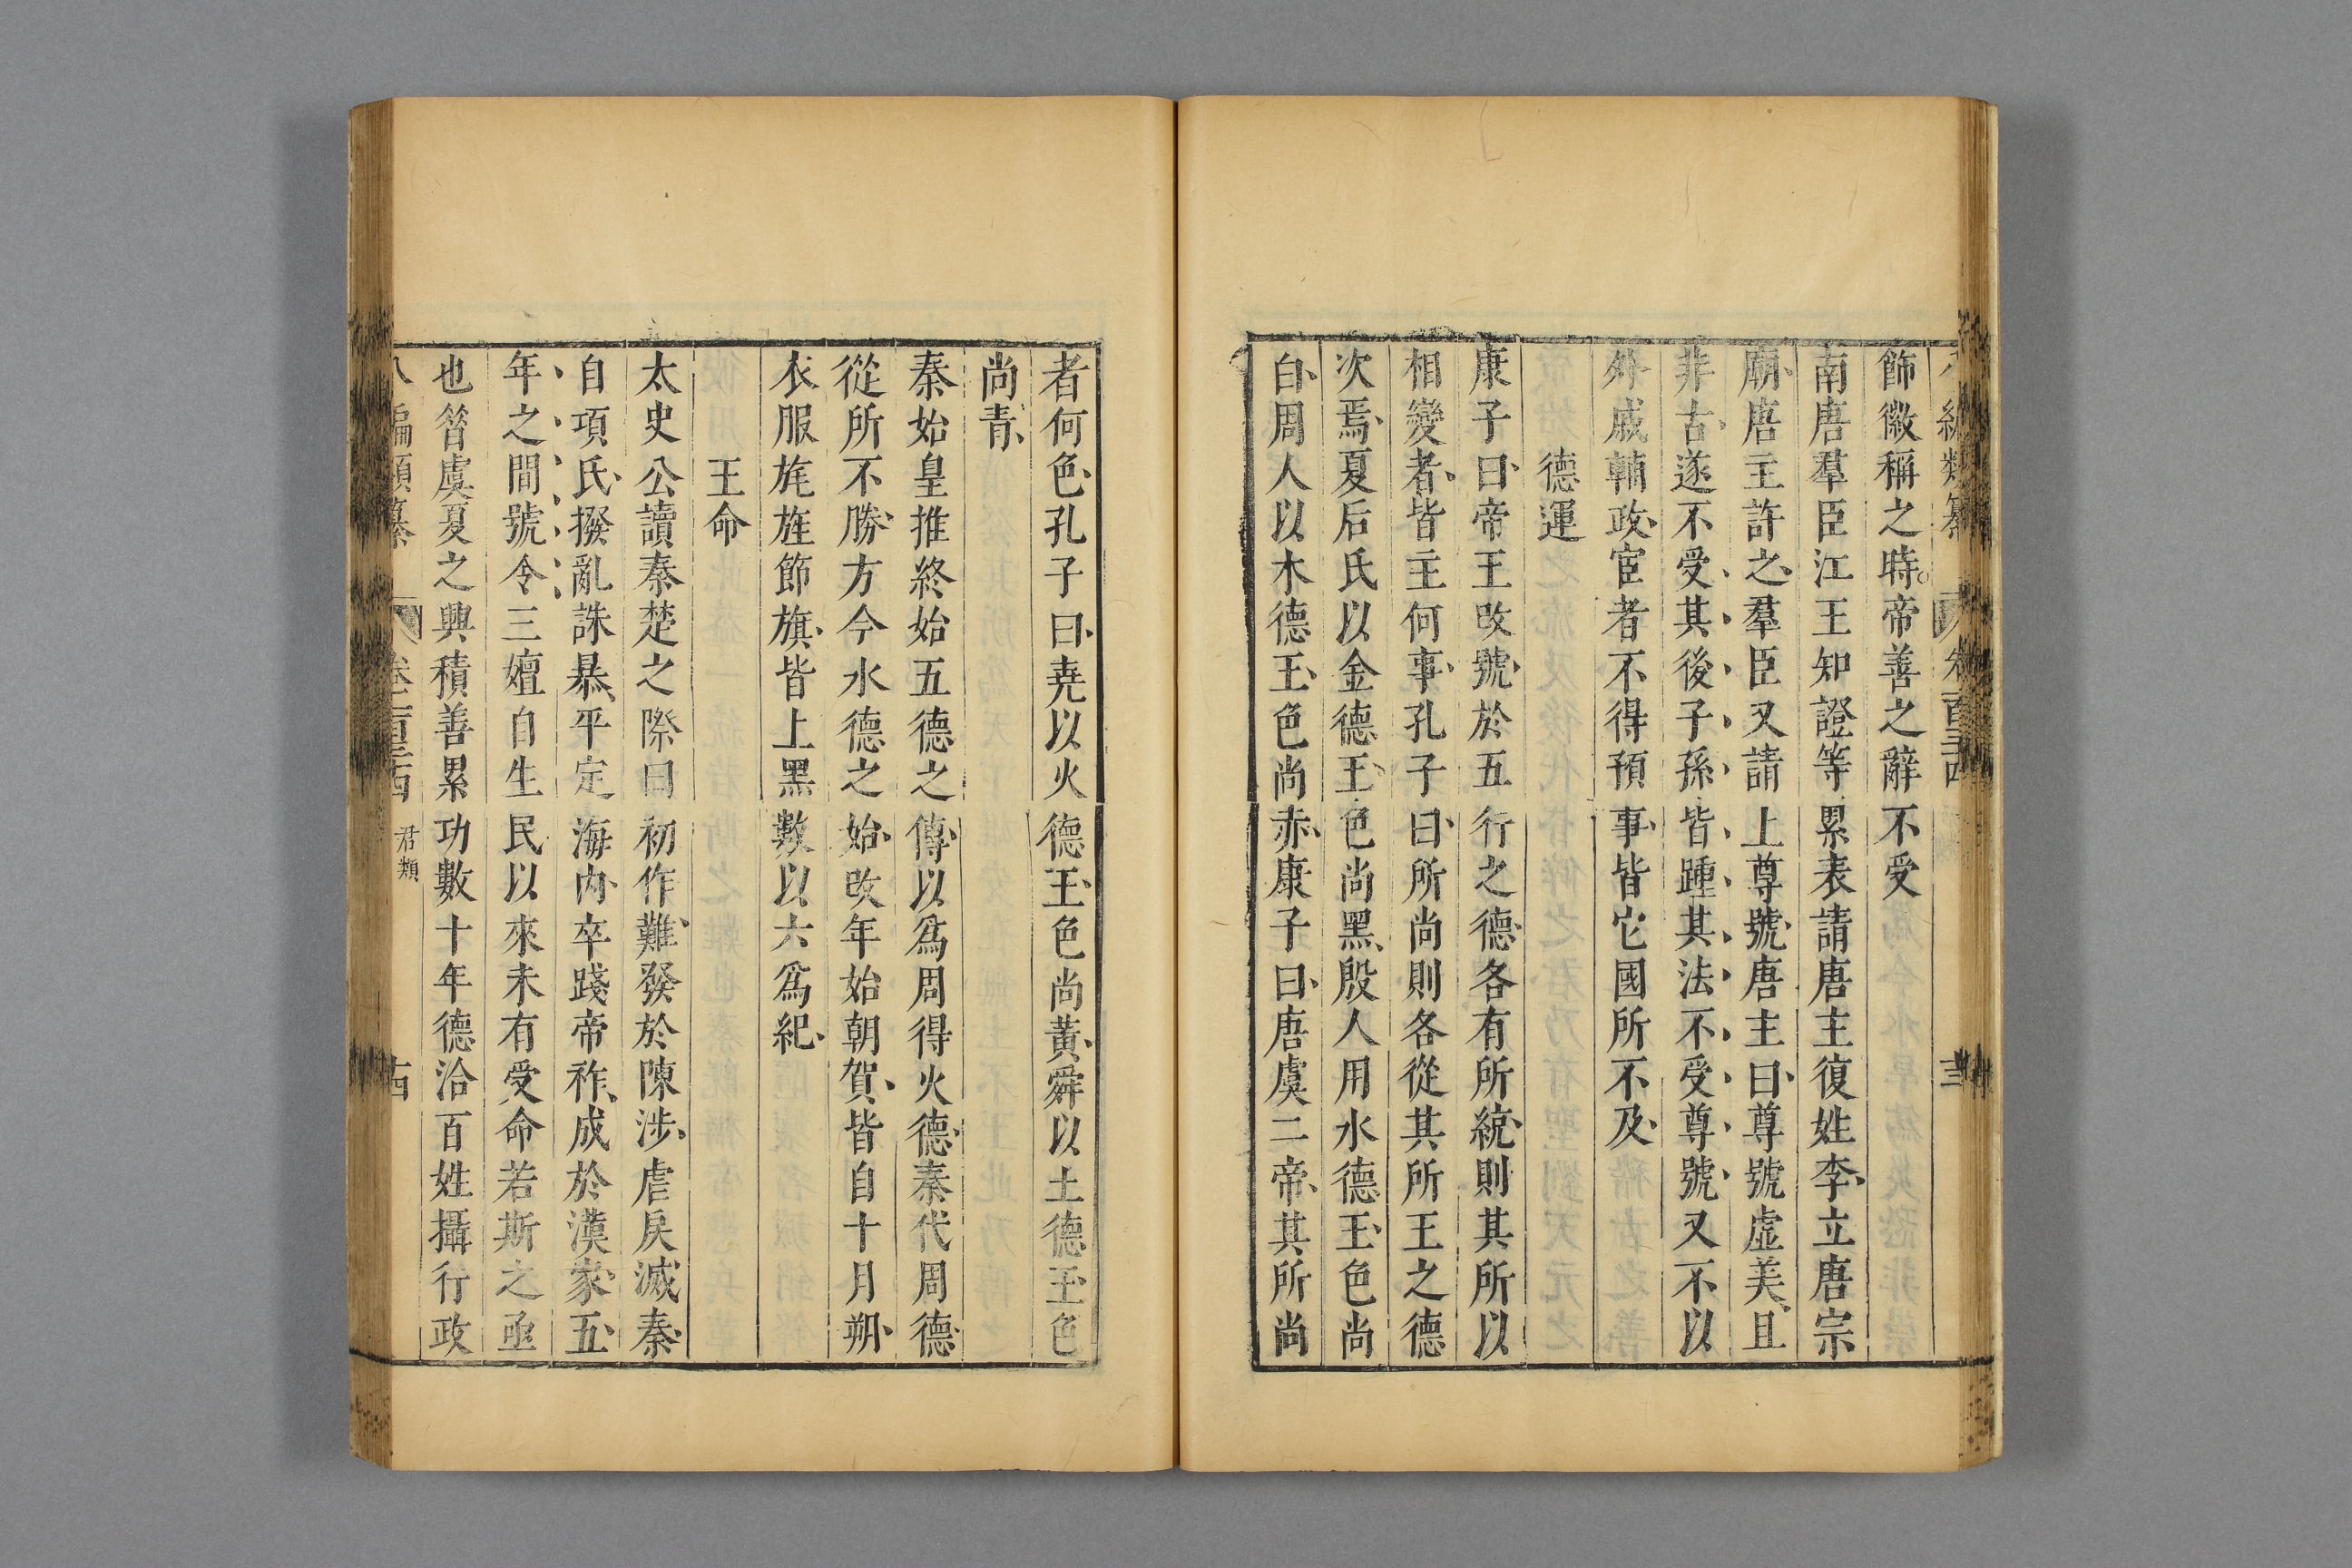 飾徽稱之時帝善之辭不受
南唐羣臣江王知證等累表請唐主復姓李立唐宗
廟唐主許之羣臣又請上尊號唐主曰尊號虛美且
非古遂不受其後子孫皆踵其法不受尊號又不以
外戚輔政宦者不得預事皆它國所不及
德運
康子曰帝王改號於五行之德各有所統則其所以
相變者皆主何事孔子曰所尚則各從其所王之德
次焉夏后氏以金德王色尚黑殷人用水德王色尚
白周人以木德王色尚赤康子曰唐虞二帝其所尚
者何色孔子曰堯以火德王色尚黃舜以土德王色
尚青
秦始皇推終始五德之傳以爲周得火德秦代周德
從所不勝方今水德之始改年始朝賀皆自十月朔
衣服旄旌節旗皆上黑數以六爲紀
王命
太史公讀秦楚之際曰初作難發於陳涉虐戾滅秦
自項氏撥亂誅暴平定海內卒踐帝祚成於漢家五
年之間號令三嬗自生民以來未有受命若斯之亟
也昝虞夏之興積善累功數十年德洽百姓攝行政
君類